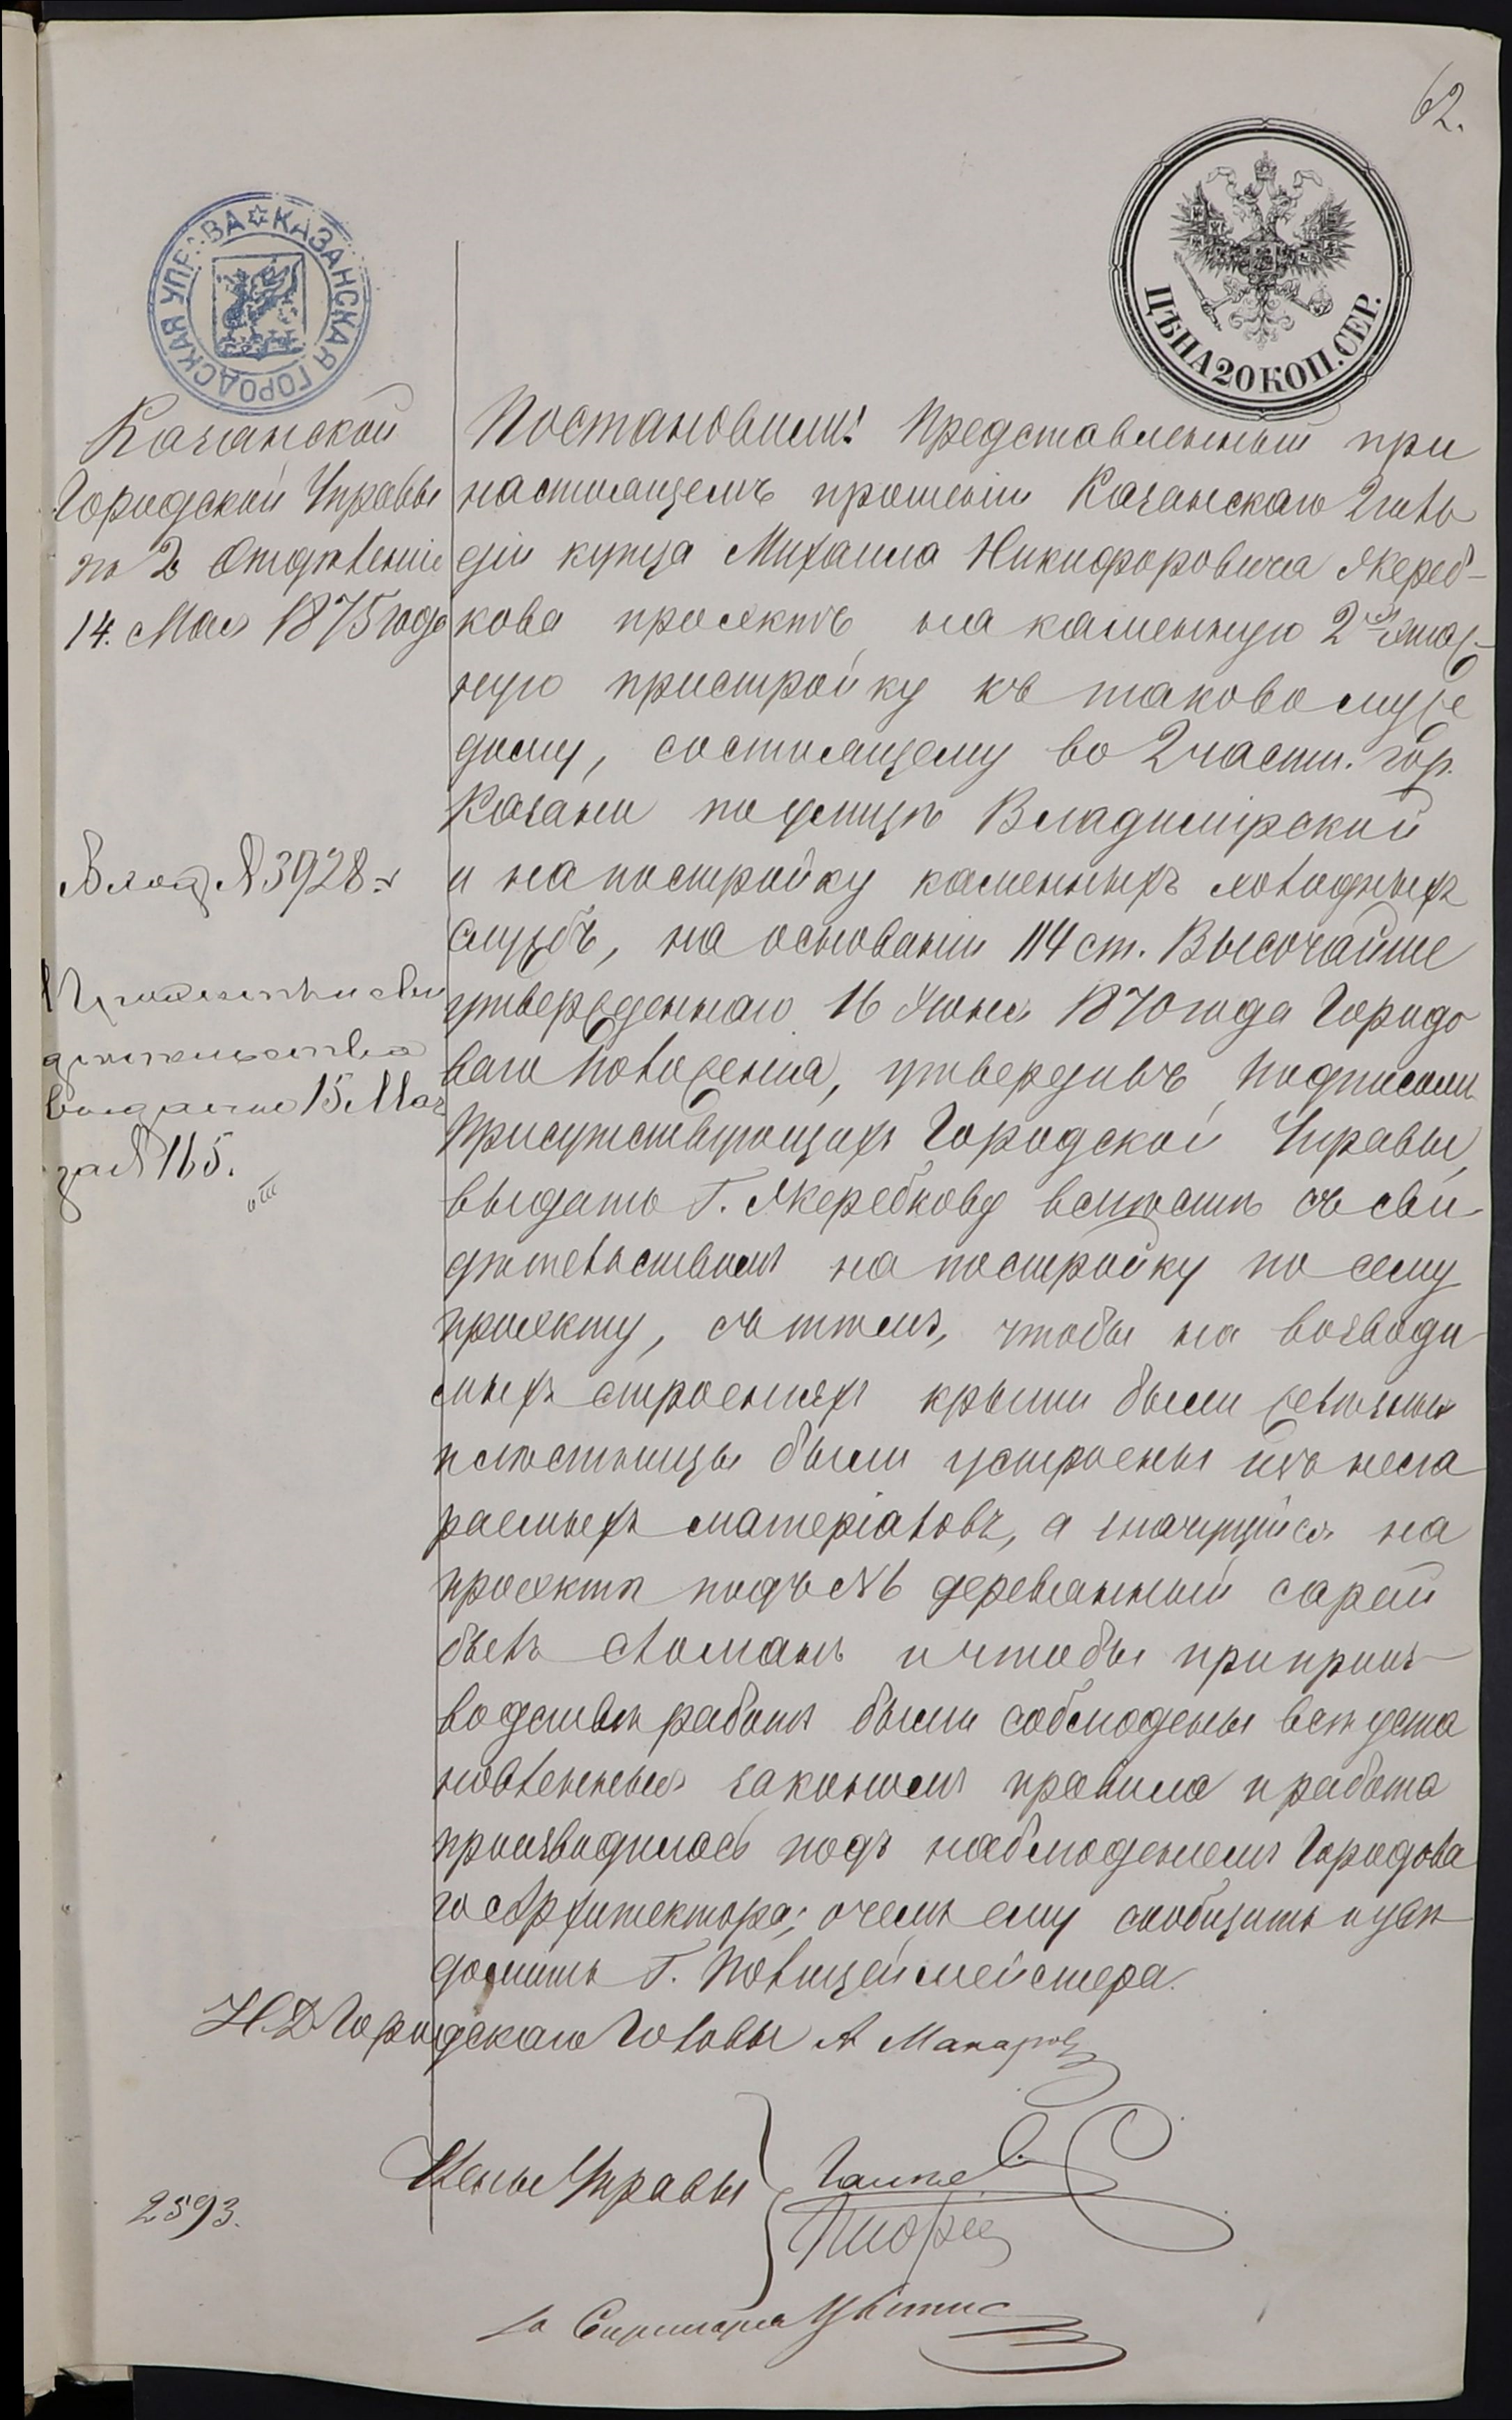 62.
КАЗАНСКАЯ ГОРОДСКАЯ УПРАВА
ЦѢНА 20 КОП. СЕР.
Казанской
Городской Управы
по 2 Отдѣленію
14. Мая 1875 года
Вход № 3928
Проэктъ и сви
дѣтельство
выданы 15 Мая
за № 165.
Постановили: Представленный при
настоящемъ прошеніи Казанскаго 2 гиль
діи купца Михаила Никифоровича Жереб-
кова проэктъ на каменную 2хъ этаж-
ную пристройку къ таковому же
дому, состоящему во 2 части. гор.
Казани по улицѣ Владимірской
и на постройку каменныхъ холодныхъ
службъ, на основаніи 114 ст. Высочайше
утвержденнаго 16 Іюня 1870 года Городо
ваго Положенія, утвердивъ подписомъ
Присутствующихъ Городской Управы,
выдать Г. Жеребкову вмѣстѣ съ сви-
дѣтельствомъ на постройку по сему
проэкту, съ тѣмъ, чтобы на возводи
мыхъ строеніяхъ крыши были желѣзныя
и лѣстницы были устроены изъ несга
раемыхъ матеріаловъ, а значущійся на
проэктѣ подъ № 6 деревянный сарай
былъ сломанъ и чтобы при произ-
водствѣ работъ были соблюдены всѣ уста
новленныя закономъ правила и работа
производилась подъ наблюденіемъ Городова
го Архитектора; о чемъ ему сообщить и увѣ
домить Г. Полицеймейстера.
И. Д. Городскаго Головы А Макаров
Члены Управы
за Секретаря
2593.